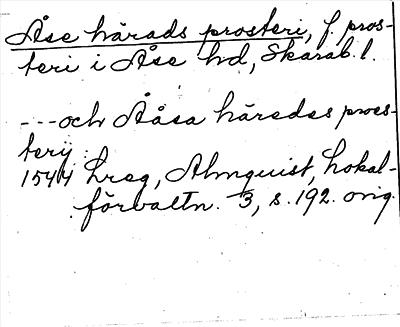 Åse härads prosteri, f. pros-
teri i Åse hd, Skarab. l.
---och Ååsa häredes pros-
terij.
1544 hreg, Almquist, Lokal-
förvaltn. 3, s. 192. orig.